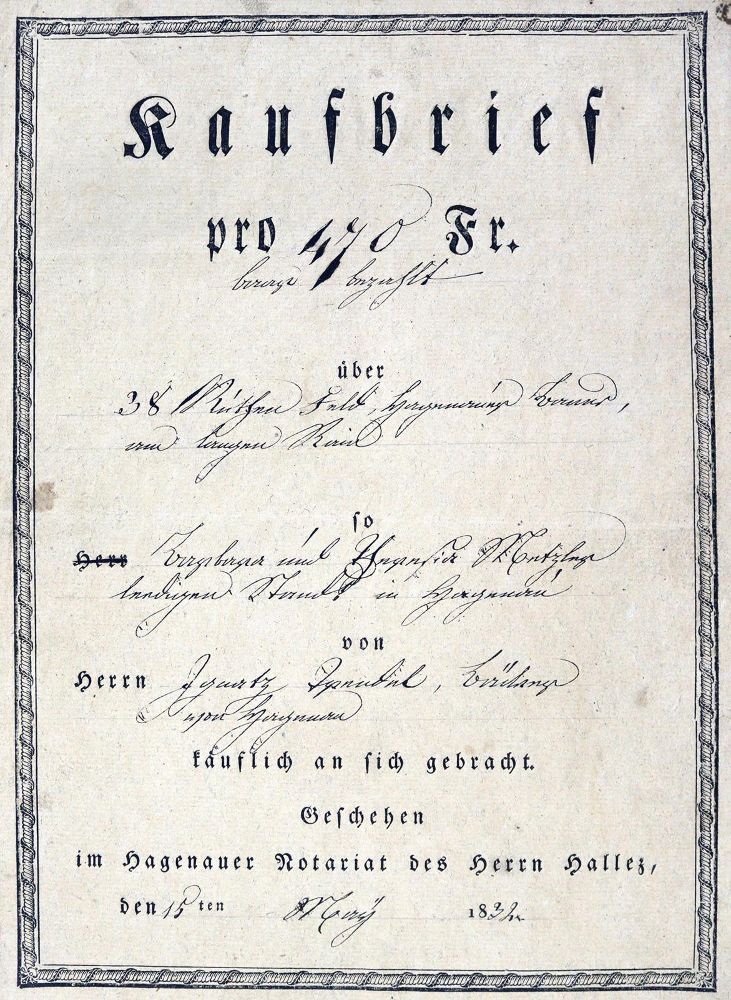 Kaufbrief
pro 470 Fr.
baar bezahlt
über
38 Ruthen Feld, Hagenauer Bann,
am langen Rain
so
Herr Barbara und Theresia Metzler
ledigen Stands in Hagenau
von
Herrn Ignatz Trendel, Bäcker
von Hagenau
käuflich an sich gebracht.
Geschehen
im Hagenauer Notariat des Herrn Hallez,
den 15ten May 1832